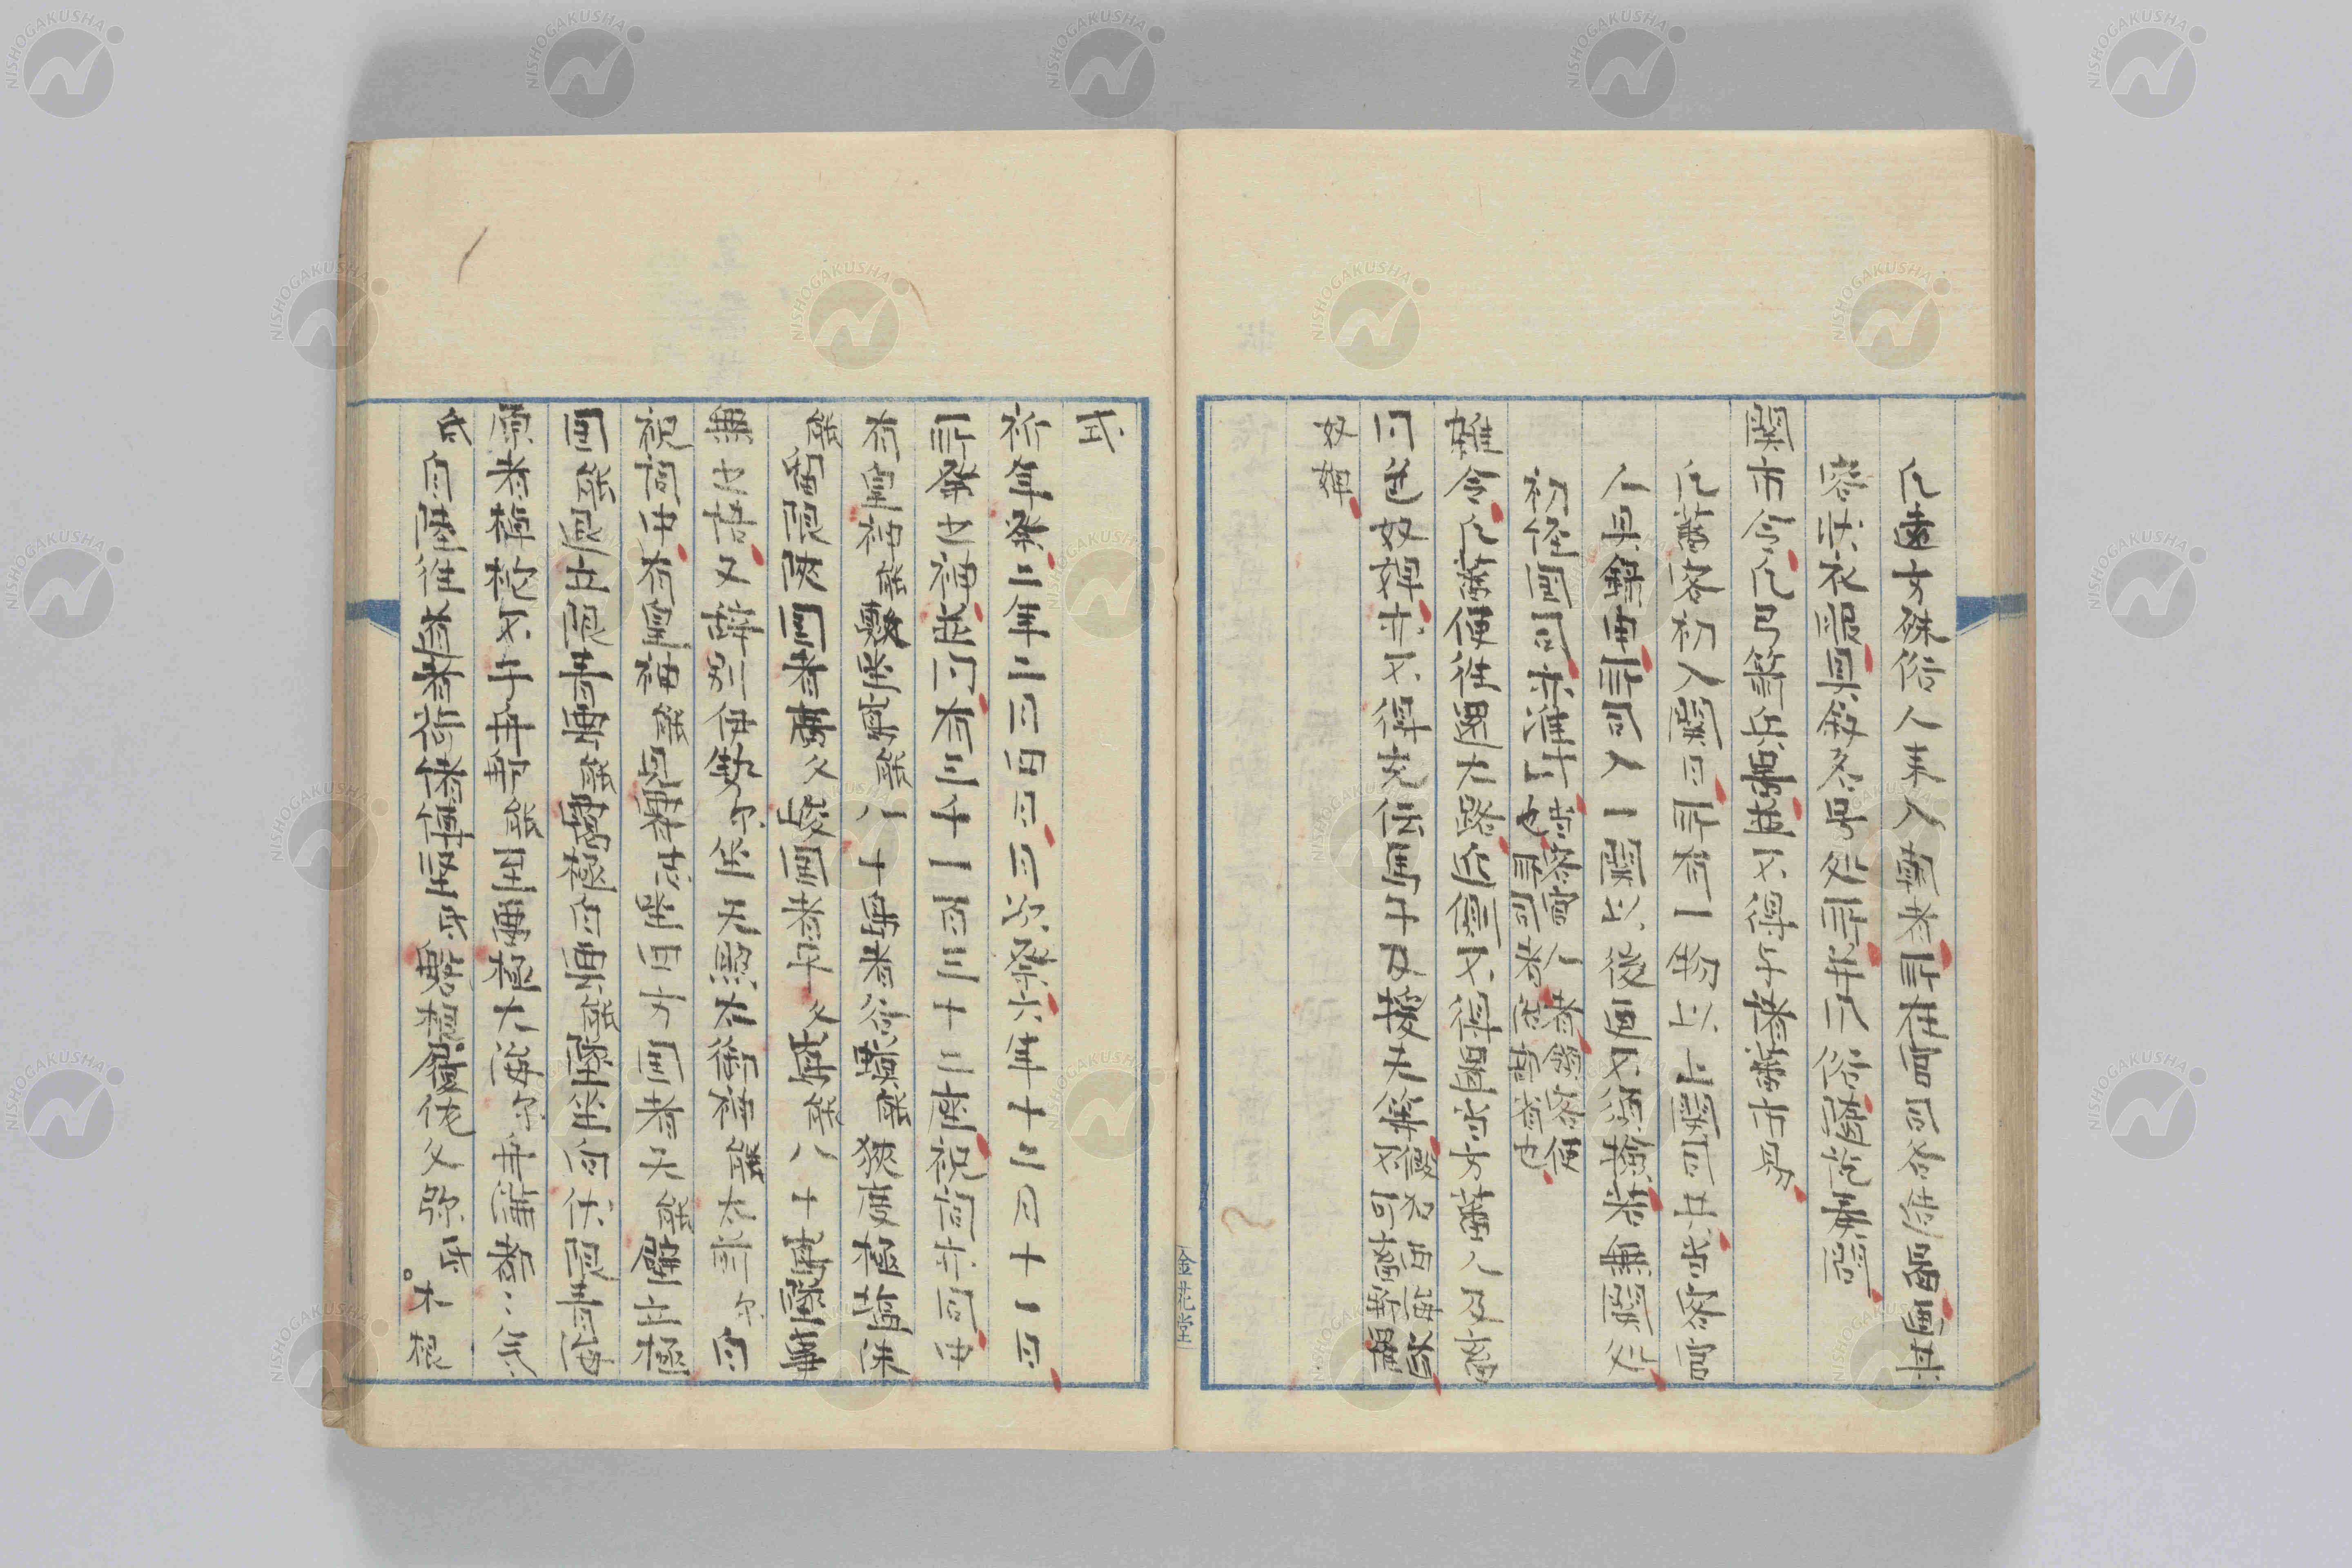 凡遠方殊俗人来入朝者所在官司各造図画其
容状衣服具叙名号処所并風俗随訖奏聞
関市令凡弓箭兵器並不得与諸蕃市易
凡蕃客初入関日所有一物以上関司共当客官
人具録申所司入一関以後更不須検若無関処
初経国司亦准此
雑令凡蕃使往還大路近側不得置当方蕃人及畜
同色奴婢亦不得充伝馬子及援夫等
奴婢
式
祈年祭二年二月四日月次祭六年十二月十一日
所祭之神並同有三千一百三十二座祝詞亦同中
有皇神能敷坐嶋能八十嶋者谷蟆能狭度極塩沫
能留限狭国者広久峻国者平久嶋能八十嶋堕事
無之語又辞別伊勢尓坐天照大御神能大前尓白
祝詞中有皇神能見霽志坐四方国者天能壁立極
国能退立限青雲能靄極白雲能堕坐向伏限青海
原者棹柁不干舟艫能至留極大海尓舟満都々気
氐自陸往道者荷緒縛堅氐磐根履佐久弥氐木根
金花堂
NISHOGAKUSHA